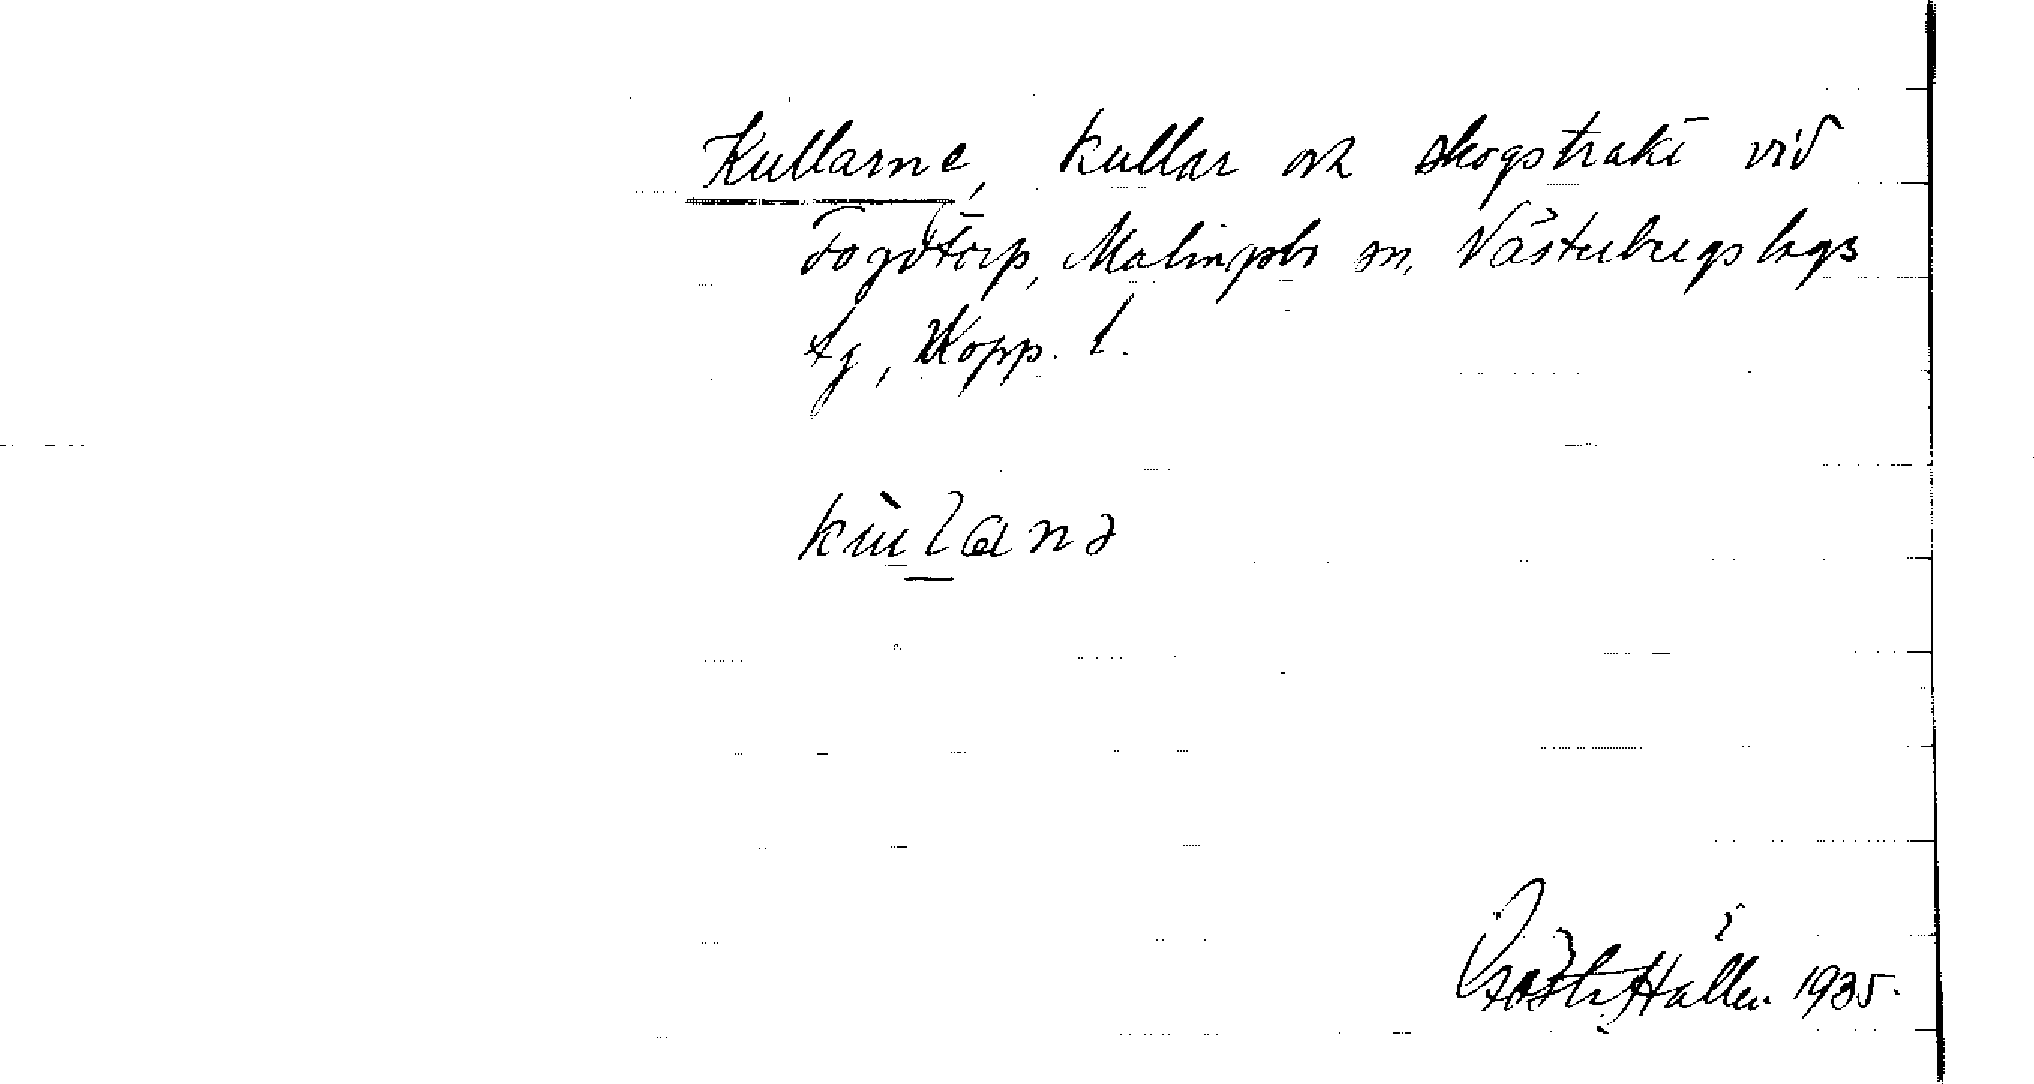 Kullarne, kullar och skogstrakt vid
Fogdtorp, Malingsbo sn, Västerbergslags
tg, Kopp. l.
kùlana
Gösta Hallén 1935.